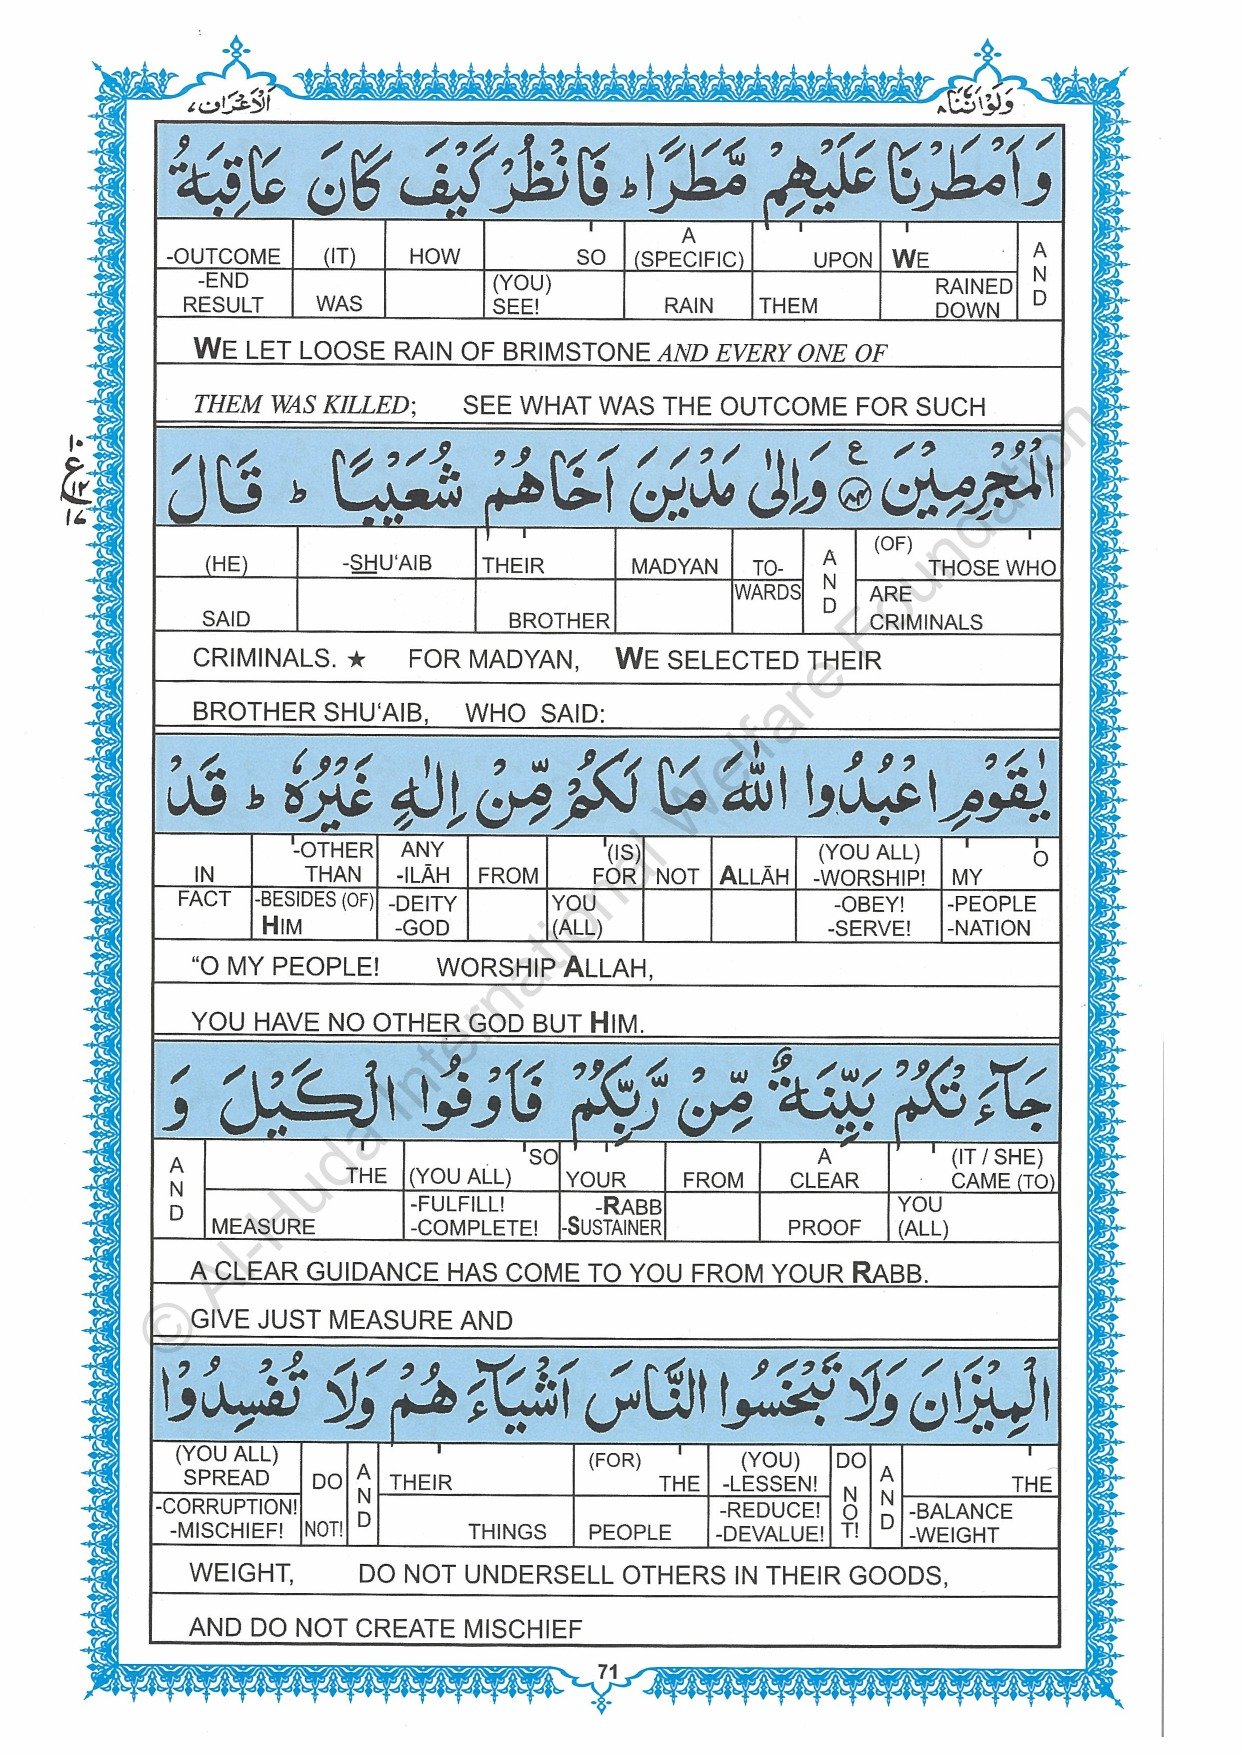 الاعراف ٧
ولواننا ٨
وَاَمْطَرْنَا عَلَيْهِمْ مَّطَرًا ؕ فَانْظُرْ كَيْفَ كَانَ عَاقِبَةُ
-OUTCOME (IT) HOW SO A (SPECIFIC) UPON WE AND
-END RESULT WAS (YOU) SEE! RAIN THEM RAINED DOWN
WE LET LOOSE RAIN OF BRIMSTONE AND EVERY ONE OF
THEM WAS KILLED; SEE WHAT WAS THE OUTCOME FOR SUCH
١٠
ع
١٢
الْمُجْرِمِيْنَ ۧ ﴿۸۴﴾ وَاِلٰى مَدْيَنَ اَخَاهُمْ شُعَيْبًا ؕ قَالَ
(HE) -SHU‘AIB THEIR MADYAN TO- AND (OF) THOSE WHO
SAID BROTHER WARDS ARE CRIMINALS
CRIMINALS. ★ FOR MADYAN, WE SELECTED THEIR
BROTHER SHU‘AIB, WHO SAID:
يٰقَوْمِ اعْبُدُوا اللّٰهَ مَا لَكُمْ مِّنْ اِلٰهٍ غَيْرُهٗ ؕ قَدْ
IN -OTHER THAN ANY -ILĀH FROM (IS) FOR NOT ALLĀH (YOU ALL) -WORSHIP! MY O
FACT -BESIDES (OF) HIM -DEITY -GOD YOU (ALL) -OBEY! -SERVE! -PEOPLE -NATION
“O MY PEOPLE! WORSHIP ALLAH,
YOU HAVE NO OTHER GOD BUT HIM.
جَآءَتْكُمْ بَيِّنَةٌ مِّنْ رَّبِّكُمْ فَاَوْفُوا الْكَيْلَ وَ
AND THE (YOU ALL) SO YOUR FROM A CLEAR (IT / SHE) CAME (TO)
MEASURE -FULFILL! -COMPLETE! -RABB -SUSTAINER PROOF YOU (ALL)
A CLEAR GUIDANCE HAS COME TO YOU FROM YOUR RABB.
GIVE JUST MEASURE AND
الْمِيْزَانَ وَلَا تَبْخَسُوا النَّاسَ اَشْيَآءَهُمْ وَلَا تُفْسِدُوْا
(YOU ALL) SPREAD DO AND THEIR (FOR) THE (YOU) -LESSEN! DO NOT! AND THE
-CORRUPTION! -MISCHIEF! NOT! THINGS PEOPLE -REDUCE! -DEVALUE! -BALANCE -WEIGHT
WEIGHT, DO NOT UNDERSELL OTHERS IN THEIR GOODS,
AND DO NOT CREATE MISCHIEF
71
© Al-Huda International Welfare Foundation